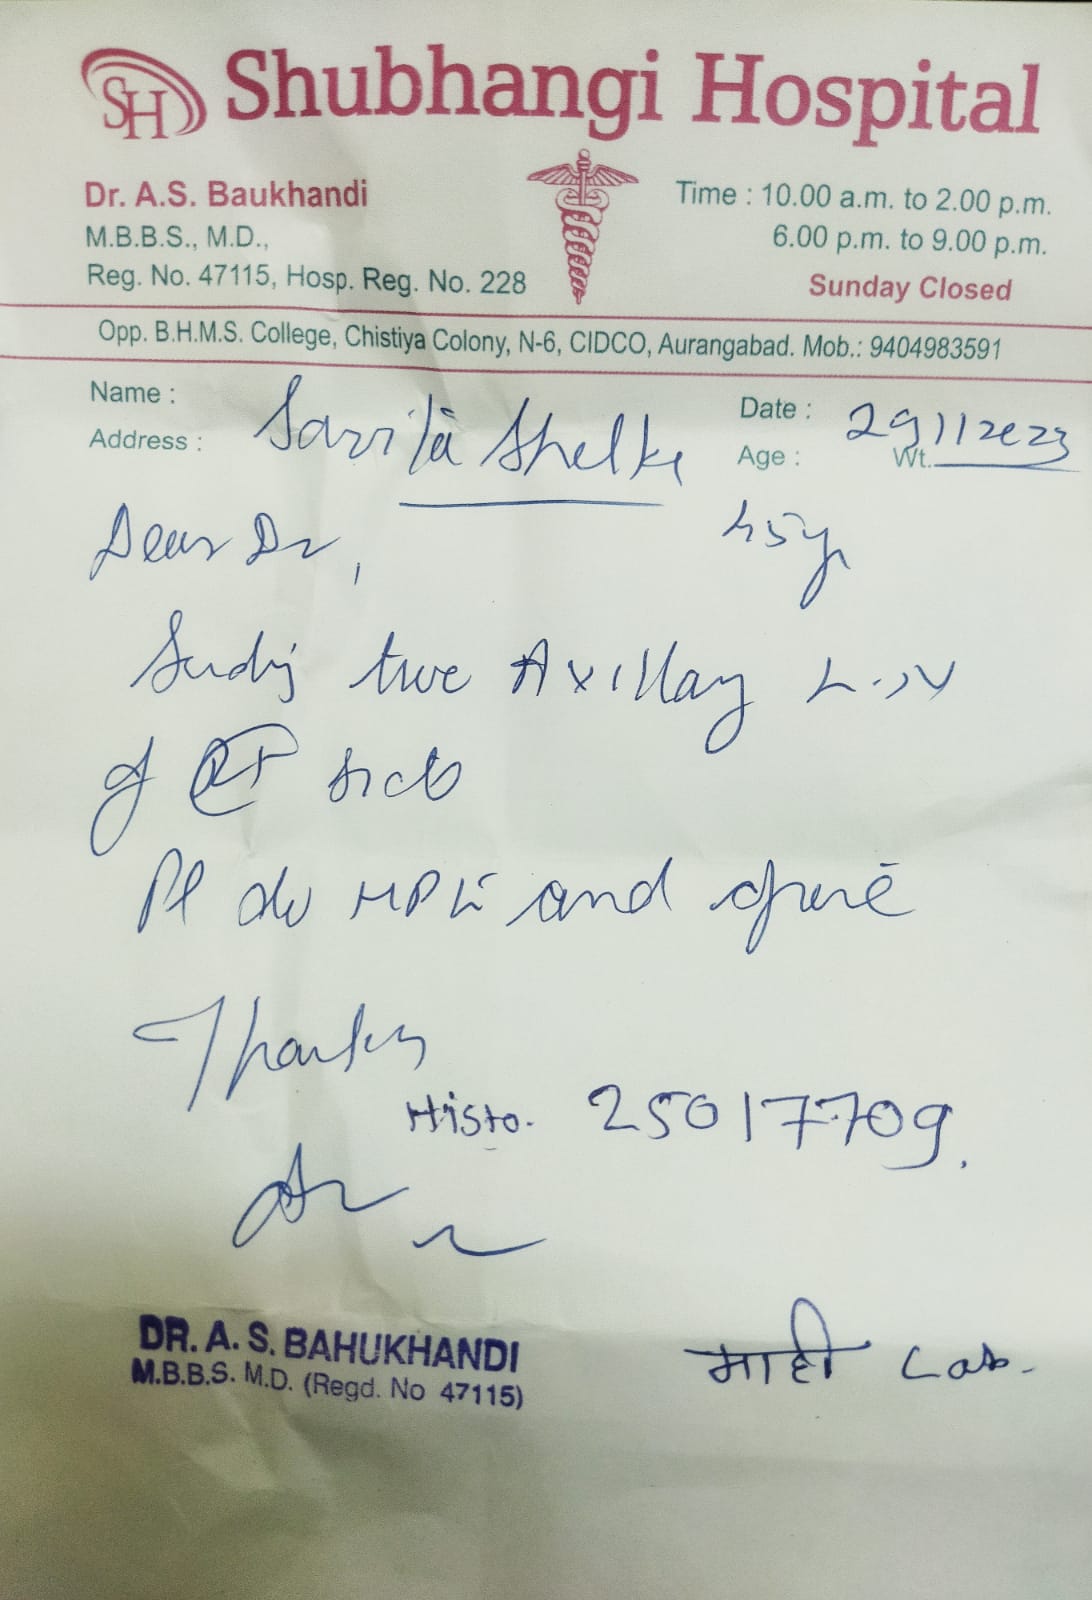 SH Shubhangi Hospital
Dr. A.S. Baukhandi
M.B.B.S., M.D.,
Reg. No. 47115, Hosp. Reg. No. 228
Time : 10.00 a.m. to 2.00 p.m.
6.00 p.m. to 9.00 p.m.
Sunday Closed
Opp. B.H.M.S. College, Chistiya Colony, N-6, CIDCO, Aurangabad. Mob.: 9404983591
Name :
Address : Savita Shelke
Date :
Age : Wt.
Dear Dr,
two Axillary
of side
Pl do and
Thanks
Histo. 25017709.
DR. A. S. BAHUKHANDI
M.B.B.S. M.D. (Regd. No 47115)
माही Lab.